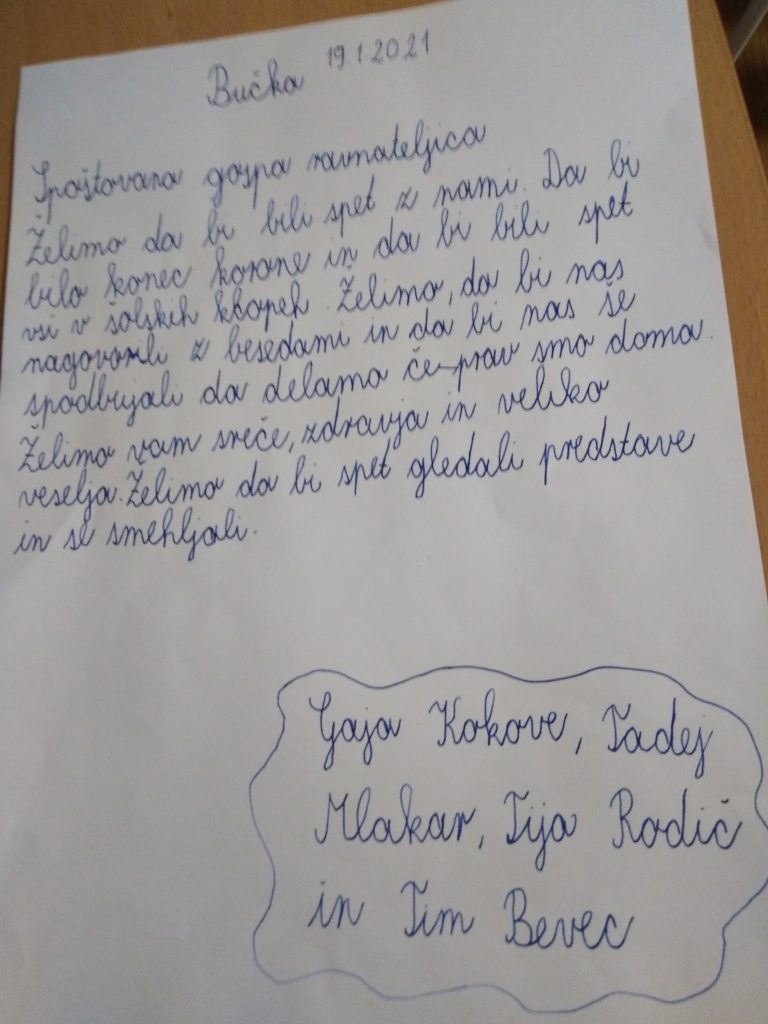 Bučka 19.1.2021
Spoštovana gospa ravnateljica
Želimo da bi bili spet z nami. Da bi
bilo konec korone in da bi bili spet
vsi v šolskih klopeh. Želimo, da bi nas
nagovorili z besedami in da bi nas še
spodbujali da delamo če-prav smo doma.
Želimo vam sreče, zdravja in veliko
veselja. Želimo da bi spet gledali predstave
in se smehljali.
Gaja Kokove, Tadej
Mlakar, Tija Rodič
in Tim Bevec